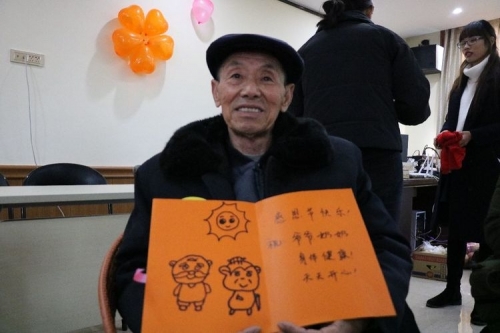 感恩节快乐!
祝: 爷爷奶奶
身体健康!
天天开心!